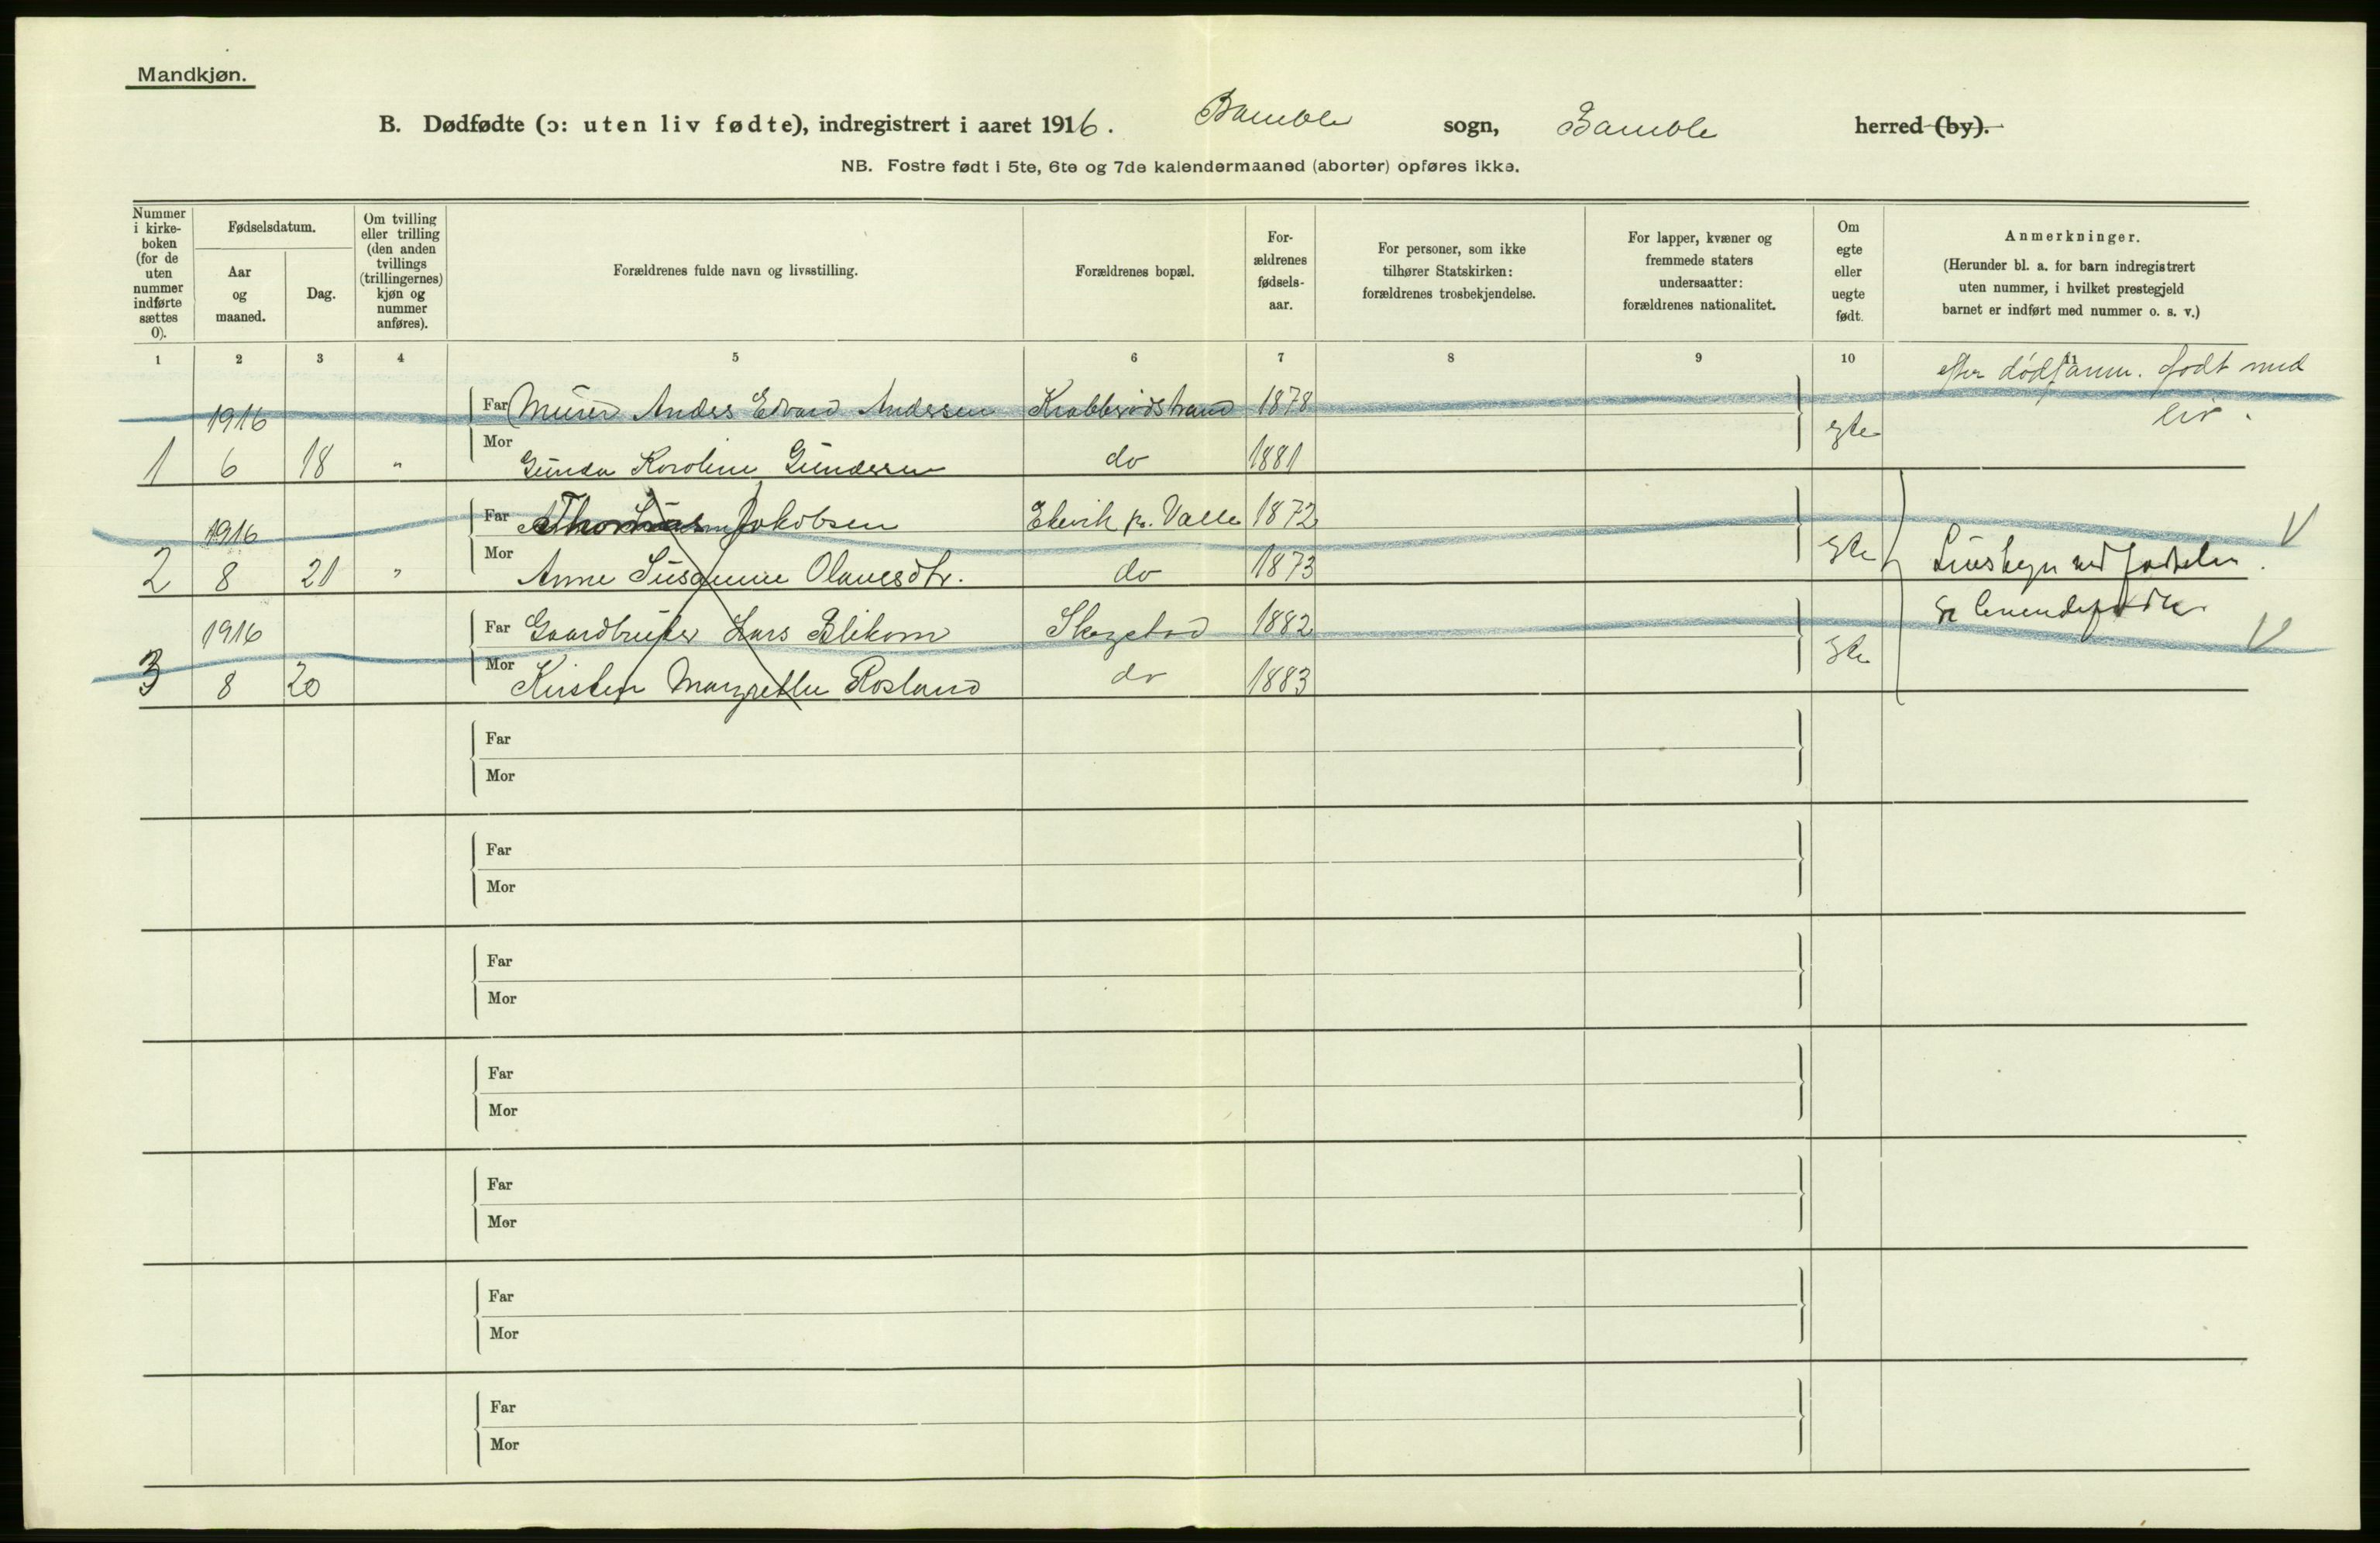 Mandkjøn.
B. Dødfødte (ɔ: uten liv fødte), indregistrert i aaret 1916. Bamble sogn, Bamble herred (by).
NB. Fostre født i 5te, 6te og 7de kalendermaaned (aborter) opføres ikke.
Nummer i kirke-boken (for de uten nummer indførte sættes 0).
Fødselsdatum.
Aar og maaned.
Dag.
Om tvilling eller trilling (den anden tvillings (trillingernes) kjøn og nummer anføres).
Forældrenes fulde navn og livsstilling.
Forældrenes bopæl.
For-ældrenes fødsels-aar.
For personer, som ikke tilhører Statskirken: forældrenes trosbekjendelse.
For lapper, kvæner og fremmede staters undersaatter: forældrenes nationalitet.
Om egte eller uegte født.
Anmerkninger.
(Herunder bl. a. for barn indregistrert uten nummer, i hvilket prestegjeld barnet er indført med nummer o. s. v.)
1 2 3 4 5 6 7 8 9 10 11
efter dødsanm. født med liv.
1916 Far Murer Anders Edvard Andersen Krabberødstrand 1878
1 6 18 " Mor Gunda Karoline Gundersen do 1881 egte
1916 Far Jakobsen Ekvik pr. Valle 1872
2 8 21 " Mor Anne Susanne Olavesdtr. do 1873 egte
Livstegn ved fødselen.
Se levendefødte
1916 Far Gaardbruker Lars Blekom Skogstad 1882
3 8 20 Mor Kirsten Margrethe Rosland do 1883 egte
Far
Mor
Far
Mor
Far
Mor
Far
Mor
Far
Mor
Far
Mor
Far
Mor